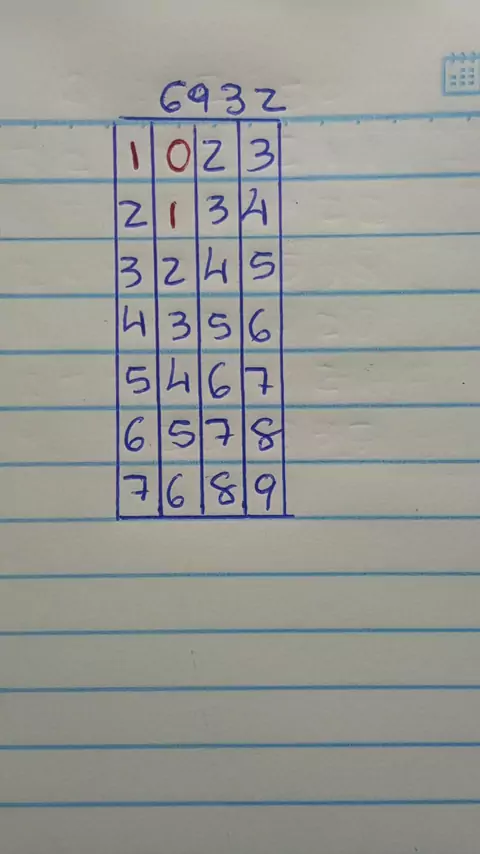 6932
1 0 2 3
2 1 3 4
3 2 4 5
4 3 5 6
5 4 6 7
6 5 7 8
7 6 8 9